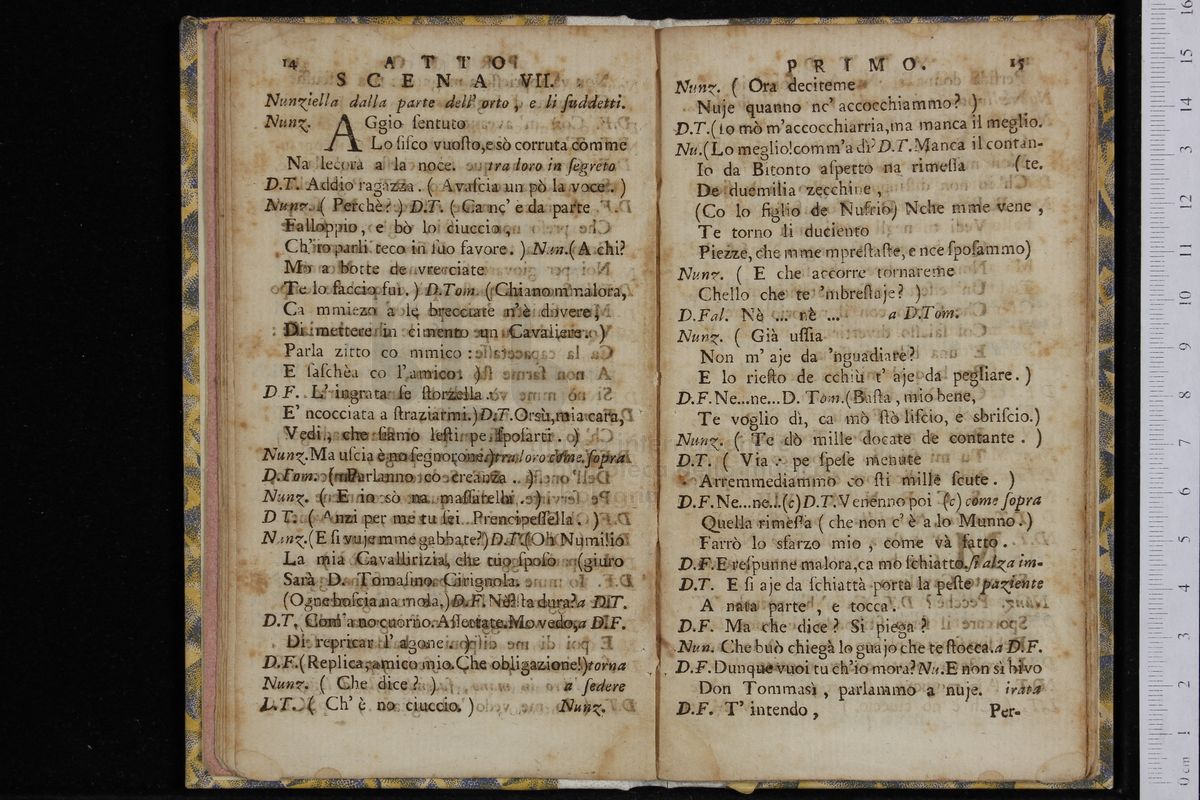 14 ATTO
SCENA VII.
Nunziella dalla parte dell' orto, e li suddetti.
Nunz. AGgio sentuto
Lo sisco vuosto, e sò corruta comme
Na lecora a la noce. tra loro in segreto
D.T. Addio ragazza. (Avascia un pò la voce.)
Nunz. (Perchè?) D.T. (Ca nc' e da parte
Falloppio, e bò lo ciuccio,
Ch'io parli teco in suo favore.) Nun. (A chi?
Mo a botte de vrecciate
Te lo faccio fuì.) D.Tom. (Chiano mmalora,
Ca mmiezo a le brecciate n'è dovere,
Di mettere in cimento un Cavaliere.)
Parla zitto co mmico:
E saschèa co l'amico.)
D F. L' ingrata se storzella.
E' ncocciata a straziarmi.) D.T. Orsù, mia cara,
Vedi, che siamo lesti pe sposarti.)
Nunz. Ma uscia è no segnorone.) tra loro come sopra
D. Tom. (Parlanno co creanza.)
Nunz. (E io sò na massatella.)
D T. (Anzi per me tu sei Prencipessella.)
Nunz. (E si vuje mme gabbate?) D.T. (Oh Numi! io
La mia Cavallirizia, che tuo sposo (giuro
Sarà D. Tomasino Cirignola.
(Ogne boscia na mola.) D.F. Nè? sta dura? a D.T.
D.T. Com' a no cuorno. Assettate. Mo vedo, a D.F.
Di repricar l' agone.
D.F. (Replica, amico mio. Che obligazione!) torna
Nunz. (Che dice?) a sedere
D.T. (Ch' è no ciuccio.) Nunz.
PRIMO. 15
Nunz. (Ora deciteme
Nuje quanno nc' accocchiammo?)
D.T. (Io mò m'accocchiarria, ma manca il meglio.
Nu. (Lo meglio! comm'a dì? D.T. Manca il contan-
Io da Bitonto aspetto na rimessa (te.
De duemilia zecchine,
(Co lo figlio de Nufrio) Nche mme vene,
Te torno li duciento
Piezze, che mme mprestaste, e nce sposammo)
Nunz. (E che accorre tornareme
Chello che te 'mbrestaje?)
D.Fal. Nè ... nè ... a D.Tom.
Nunz. (Già ussia
Non m' aje da 'nguadiare?
E lo riesto de cchiù t' aje da pegliare.)
D.F. Ne...ne...D. Tom. (Basta, mio bene,
Te voglio di, ca mò stò liscio, e sbriscio.)
Nunz. (Te dò mille docate de contante.)
D.T. (Via: pe spese menute
Arremmediammo co sti mille scute.)
D.F. Ne...ne... (c) D.T. Venenno poi (c) come sopra
Quella rimessa (che non c' è a lo Munno.)
Farrò lo sfarzo mio, come và fatto.
D.F. E respunne malora, ca mò schiatto. si alza im-
D.T. E si aje da schiattà porta la peste paziente
A nata parte, e tocca.
D.F. Ma che dice? Si piega?
Nun. Che buò chiegà lo guajo che te stocca. a D.F.
D.F. Dunque vuoi tu ch'io mora? Nu. E non sì bivo
Don Tommasì, parlammo a nuje. irata
D.F. T' intendo, Per-